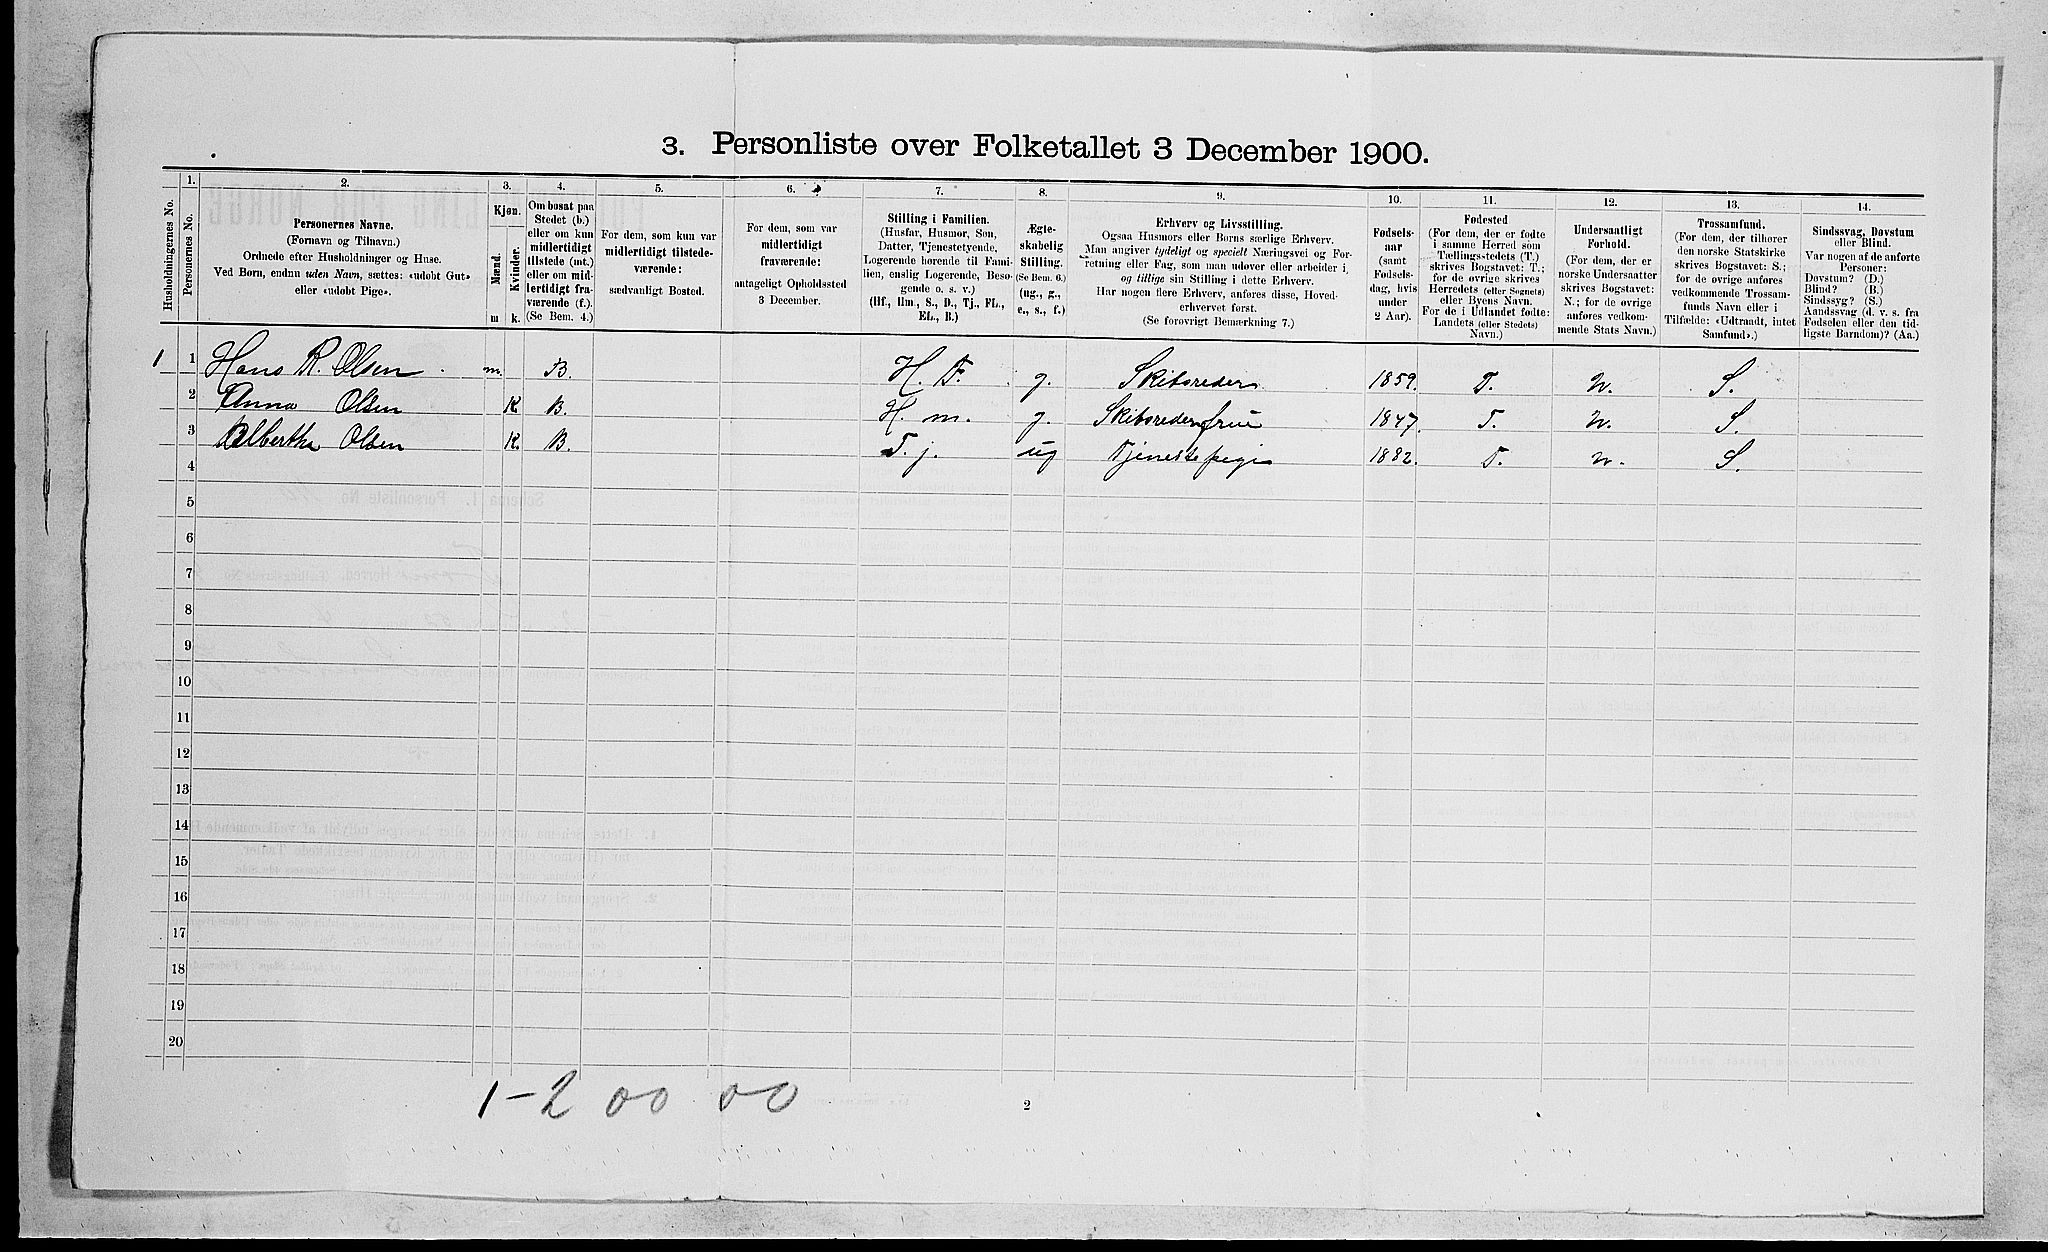 3. Personliste over Folketallet 3 December 1900.
Husholdningernes No.
1.
Personernes No.
2.
Personernes Navne.
(Fornavn og Tilnavn.)
Ordnede efter Husholdninger og Huse.
Ved Børn, endnu uden Navn, sættes: «udøbt Gut»
eller «udøbt Pige».
3.
Kjøn.
Mænd.
Kvinder.
m k.
4.
Om bosat paa
Stedet (b.)
eller om kun
midlertidigt
tilstede (mt.)
eller om mid-
lertidigt fra-
værende (f.).
(Se Bem. 4.)
5.
For dem, som kun var
midlertidigt tilstede-
værende:
sædvanligt Bosted.
6.
For dem, som var
midlertidigt
fraværende:
antageligt Opholdssted
3 December.
7.
Stilling i Familien.
(Husfar, Husmor, Søn,
Datter, Tjenestetyende,
Logerende hørende til Fami-
lien, enslig Logerende, Besø-
gende o. s. v.)
(Hf., Hm., S., D., Tj., FL.,
EL., B.)
8.
Ægte-
skabelig
Stilling.
(Se Bem. 6.)
(ug., g.,
e., s., f.)
9.
Erhverv og Livsstilling.
Ogsaa Husmors eller Børns særlige Erhverv.
Man angiver tydeligt og specielt Næringsvei og For-
retning eller Fag, som man udøver eller arbeider i,
og tillige sin Stilling i dette Erhverv.
Har nogen flere Erhverv, anføres disse, Hoved-
erhvervet først.
(Se forøvrigt Bemærkning 7.)
10.
Fødsels-
aar
(samt
Fødsels-
dag, hvis
under
2 Aar).
11.
Fødested
(For dem, der er fødte
i samme Herred som
Tællingsstedets (T.)
skrives Bogstavet: T.;
for de øvrige skrives
Herredets (eller Sognets)
eller Byens Navn.
For de i Udlandet fødte:
Landets (eller Stedets)
Navn.)
12.
Undersaatligt
Forhold.
(For dem, der er
norske Undersaatter
skrives Bogstavet:
N.; for de øvrige
anføres vedkom-
mende Stats Navn.)
13.
Trossamfund.
(For dem, der tilhører
den norske Statskirke
skrives Bogstavet: S.;
for de øvrige anføres
vedkommende Trossam-
funds Navn eller i
Tilfælde: «Udtraadt, intet
Samfund».)
14.
Sindssvag, Døvstum
eller Blind.
Var nogen af de anførte
Personer:
Døvstum? (D.)
Blind? (B.)
Sindssyg? (S.)
Aandssvag (d. v. s. fra
Fødselen eller den tid-
ligste Barndom)? (Aa.)
1 1 Hans R. Olsen m. B. H. F. g. Skibsreder 1859. T. N. S.
2 Anna Olsen K. B. H. m. g. Skibsrederfrue 1847. T. N. S.
3 Alberthe Olsen K. B. T. j. ug Tjenestepige 1882. T. N. S.
4
5
6
7
8
9
10
11
12
13
14
15
16
17
18
19
20
1-2 00 00
2